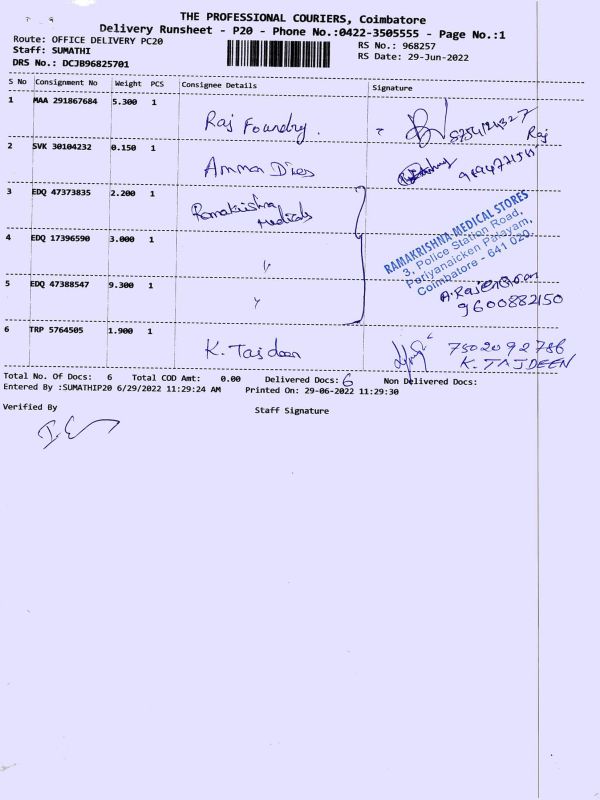 THE PROFESSIONAL COURIERS, Coimbatore
Delivery Runsheet - P20 - Phone No.:0422-3505555 - Page No.:1
Route: OFFICE DELIVERY PC20
RS No.: 968257
Staff: SUMATHI
RS Date: 29-Jun-2022
DRS No.: DCJB96825701
S No Consignment No Weight PCS Consignee Details Signature
1 MAA 291867684 5.300 1 Raj Foundry. Raj
2 SVK 30104232 0.150 1 Amman Dies
3 EDQ 47373835 2.200 1 Ramakrishna Medicals
RAMAKRISHNA MEDICAL STORES
3, Police Station Road,
Periyanaicken Palayam,
Coimbatore - 641 020.
4 EDQ 17396590 3.000 1 "
5 EDQ 47388547 9.300 1 "
9600882150
6 TRP 5764505 1.900 1 K. Tajdeen 7502092786
K. TAJDEEN
Total No. Of Docs: 6 Total COD Amt: 0.00 Delivered Docs: 6 Non Delivered Docs:
Entered By :SUMATHIP20 6/29/2022 11:29:24 AM Printed On: 29-06-2022 11:29:30
Verified By
Staff Signature